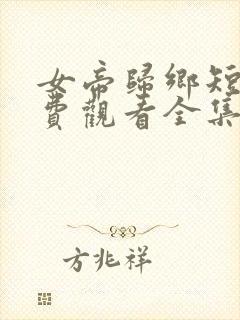 女帝歸鄉短
費觀看全集
方兆祥